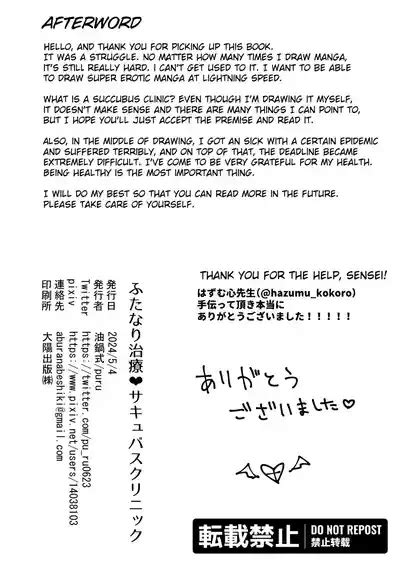 AFTERWORD
HELLO, AND THANK YOU FOR PICKING UP THIS BOOK.
IT WAS A STRUGGLE. NO MATTER HOW MANY TIMES I DRAW MANGA,
IT'S STILL REALLY HARD. I CAN'T GET USED TO IT. I WANT TO BE ABLE
TO DRAW SUPER EROTIC MANGA AT LIGHTNING SPEED.
WHAT IS A SUCCUBUS CLINIC? EVEN THOUGH I'M DRAWING IT MYSELF,
IT DOESN'T MAKE SENSE AND THERE ARE MANY THINGS I CAN POINT TO,
BUT I HOPE YOU'LL JUST ACCEPT THE PREMISE AND READ IT.
ALSO, IN THE MIDDLE OF DRAWING, I GOT AN SICK WITH A CERTAIN EPIDEMIC
AND SUFFERED TERRIBLY, AND ON TOP OF THAT, THE DEADLINE BECAME
EXTREMELY DIFFICULT. I'VE COME TO BE VERY GRATEFUL FOR MY HEALTH.
BEING HEALTHY IS THE MOST IMPORTANT THING.
I WILL DO MY BEST SO THAT YOU CAN READ MORE IN THE FUTURE.
PLEASE TAKE CARE OF YOURSELF.
THANK YOU FOR THE HELP, SENSEI!
はずむ心先生(@hazumu_kokoro)
手伝って頂き本当に
ありがとうございました！！！！！
ありがとう
ございました♡
ふたなり治療♥サキュバスクリニック
発行日 2024/5/4
発行者 油鍋弐/puru
Twitter https://twitter.com/pu_ru0623
pixiv https://www.pixiv.net/users/14038103
連絡先 aburanabeshiki@gmail.com
印刷所 大陽出版㈱
転載禁止
DO NOT REPOST
禁止转载